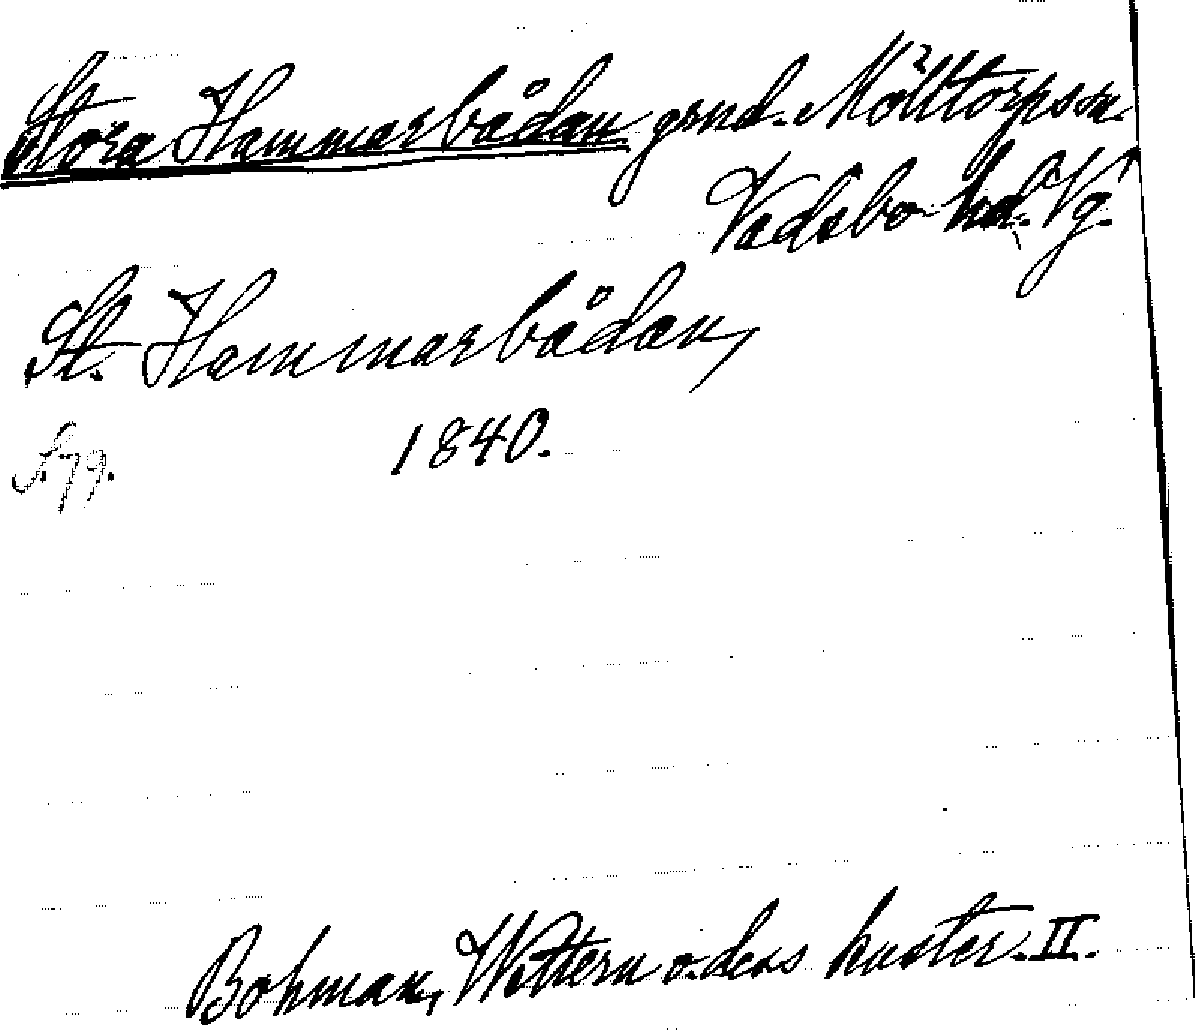 Stora Hammarbådan grnd. Mölltorps sn.
Vadsbo hd. Vg.
St. Hammarbådan,
1840.
S. 79.
Bohman, Wettern o. dess kuster. II.